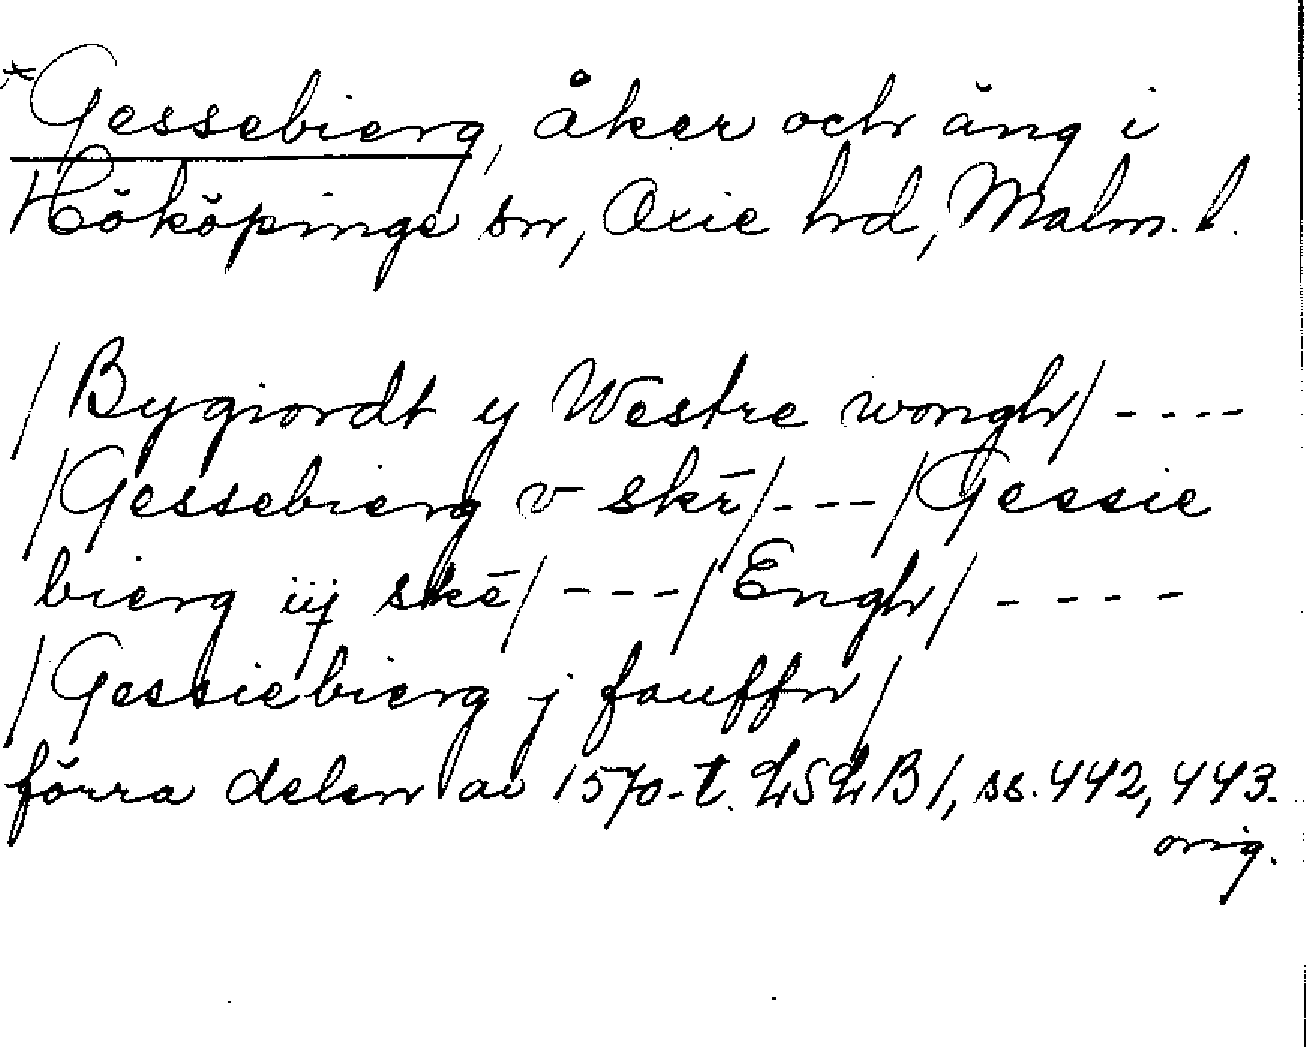 *Gessebierg, åker och äng i
Hököpinge sn, Oxie hd, Malm. l.
/Bygiordt y Westre wongh/ ----
/Gessebierg v skē/ --- /Gessie
bierg iij skē/ --- /Engh/ ----
/Gessiebierg j fauffn/
förra delen av 1570-t. LSLB 1, ss. 442, 443.
orig.